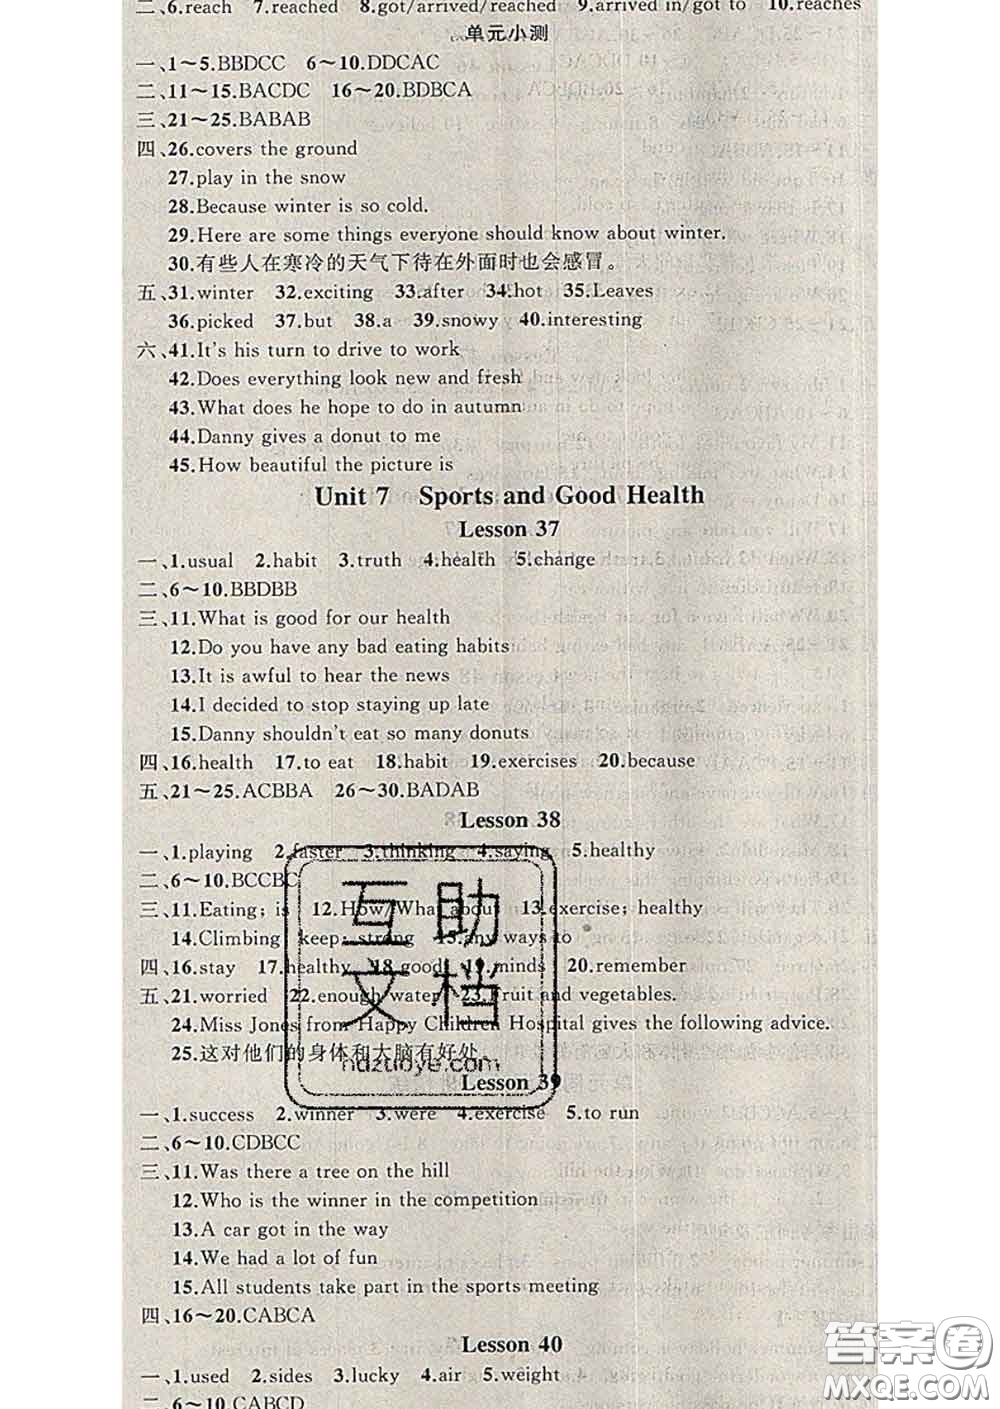 二、6.reach 7.reached 8.got/arrived/reached 9.arrived in/got to 10.reaches
单元小测
一、1～5.BBDCC 6～10.DDCAC
二、11～15.BACDC 16～20.BDBCA
三、21～25.BABAB
四、26.covers the ground
27.play in the snow
28.Because winter is so cold.
29.Here are some things everyone should know about winter.
30.有些人在寒冷的天气下待在外面时也会感冒。
五、31.winter 32.exciting 33.after 34.hot 35.Leaves
36.picked 37.but 38.a 39.snowy 40.interesting
六、41.It's his turn to drive to work
42.Does everything look new and fresh
43.What does he hope to do in autumn
44.Danny gives a donut to me
45.How beautiful the picture is
Unit 7 Sports and Good Health
Lesson 37
一、1.usual 2.habit 3.truth 4.health 5.change
二、6～10.BBDBB
三、11.What is good for our health
12.Do you have any bad eating habits
13.It is awful to hear the news
14.I decided to stop staying up late
15.Danny shouldn't eat so many donuts
四、16.health 17.to eat 18.habit 19.exercises 20.because
五、21～25.ACBBA 26～30.BADAB
Lesson 38
一、1.playing 2.faster 3.thinking 4.saying 5.healthy
二、6～10.BCCBC
三、11.Eating; is 12.How/What about 13.exercise; healthy
14.Climbing keep; strong 15.any ways to
四、16.stay 17.healthy 18.good 19.minds 20.remember
五、21.worried 22.enough water 23.Fruit and vegetables.
24.Miss Jones from Happy Children Hospital gives the following advice.
25.这对他们的身体和大脑有好处。
互助文档
hdzuoye.com
Lesson 39
一、1.success 2.winner 3.were 4.exercise 5.to run
二、6～10.CDBCC
三、11.Was there a tree on the hill
12.Who is the winner in the competition
13.A car got in the way
14.We had a lot of fun
15.All students take part in the sports meeting
四、16～20.CABCA
Lesson 40
一、1.used 2.sides 3.lucky 4.air 5.weight
二、6～10.CABCD
答案圈
MXQE.COM